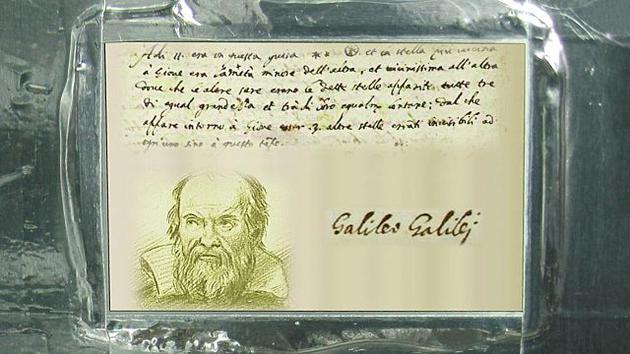 Adi 11. era in questa guisa ** et la stella più vicina
à Giove era la metà minore dell'altra, et vicinissima all'altra
dove che le altre sere erano le dette stelle apparite tutte tre
di equal grandezza et trà di loro equalm. lontane; dal che
appare intorno à Giove esser 3. altre stelle erranti invisibili ad
ogn'uno sino à questo tẽpo.
Galileo Galilej